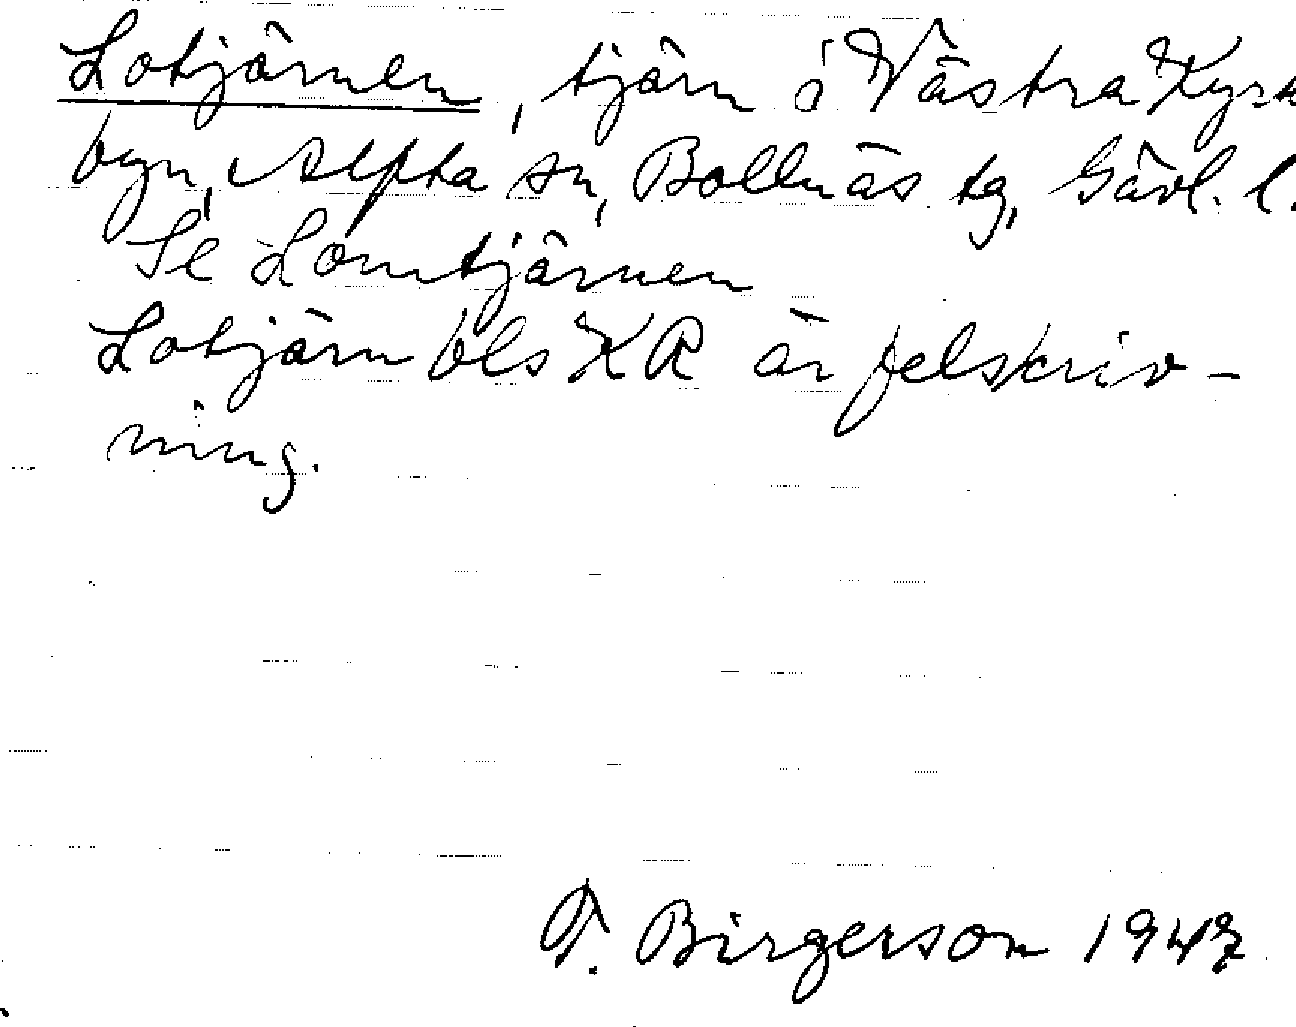 Lotjärnen, tjärn å Västra Kyrk
byn, Alfta sn, Bollnäs tg, Gävl. l.
Se Lomtjärnen
Lotjärn bls KR är felskriv-
ning.
T. Birgerson 1947